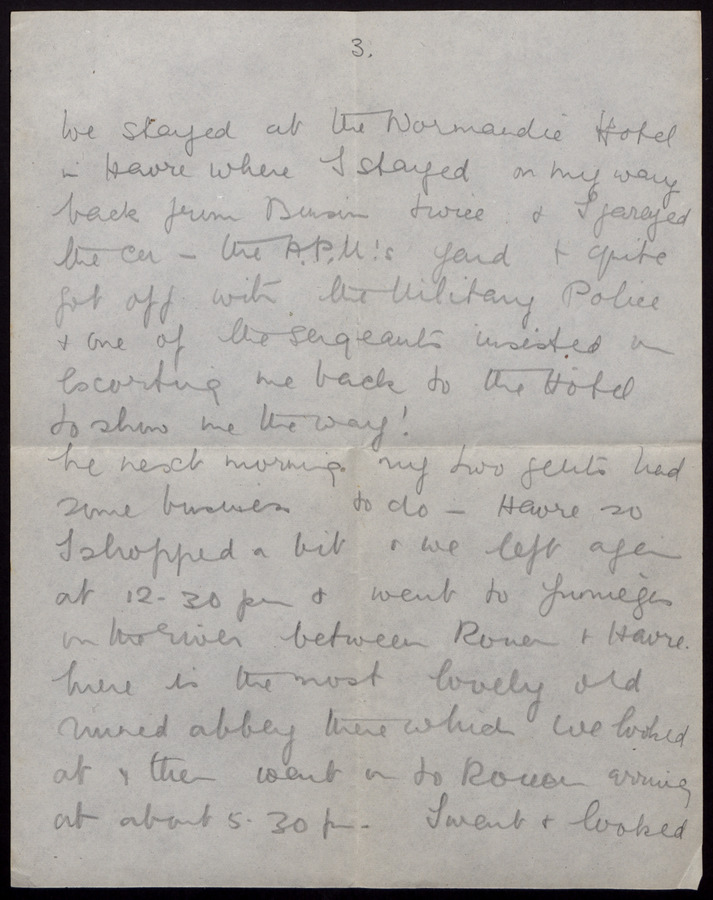 3.
We stayed at the Normandie Hotel
in Havre where I stayed on my way
back from twice & I garaged
the car in the A.P.M.'s yard & quite
got off with the Military Police
& one of the sergeants insisted on
escorting me back to the Hotel
to show me the way!
The next morning my two gents had
some business to do in Havre so
I shopped a bit & we left again
at 12-30 pm & went to Jumièges
on the river between Rouen & Havre.
There is the most lovely old
ruined abbey there which we looked
at & then went on to Rouen arriving
at about 5.30 pm. I went & looked